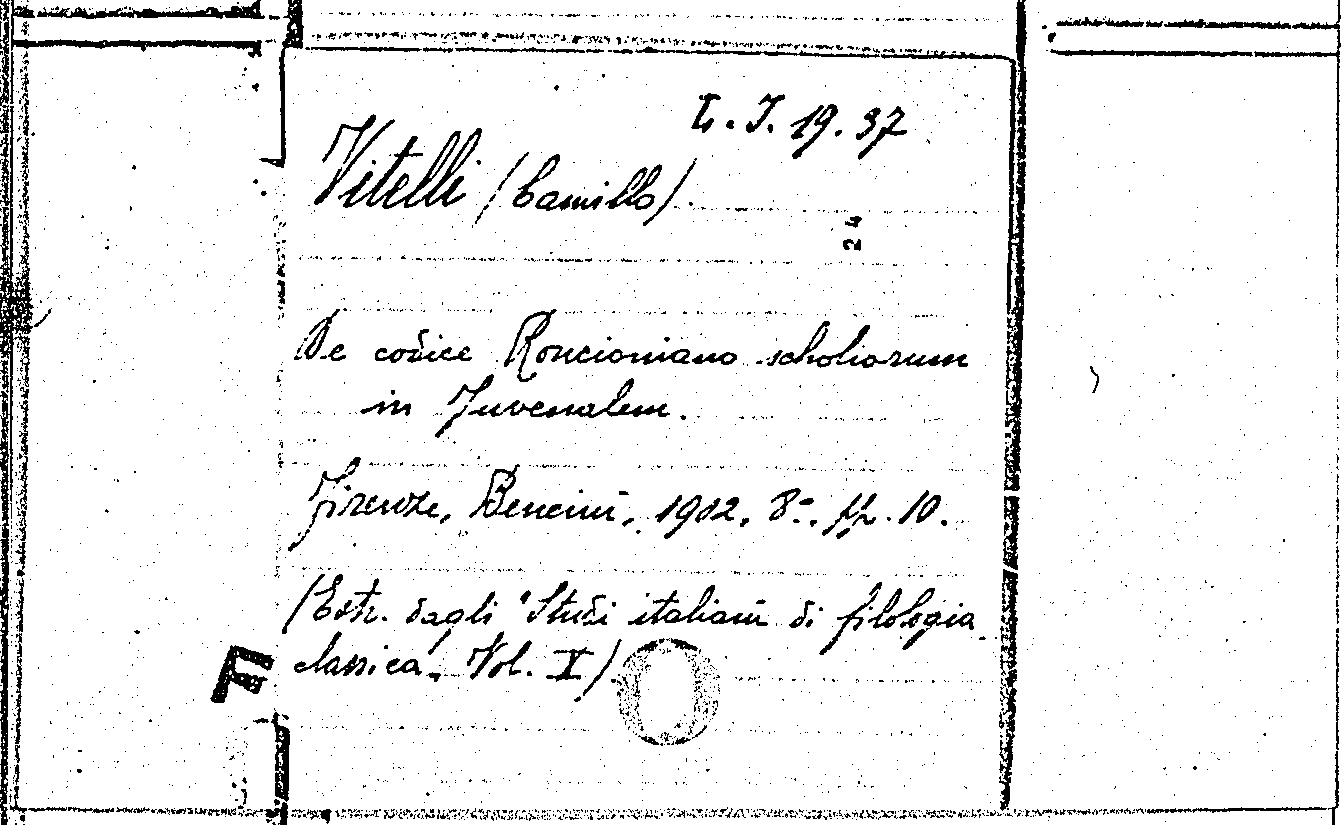 L. J. 19. 37
Vitelli (Camillo).
24
De codice Roncioniano scholiorum
in Juvenalem.
Firenze, Bencini, 1902, 8º. pp. 10.
(Estr. dagli "Studi italiani di filologia
classica", Vol. X).
F